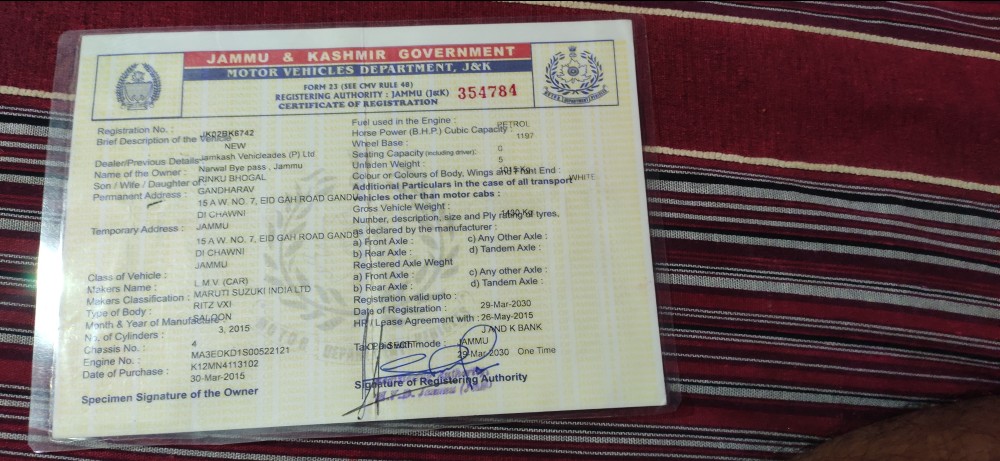 JAMMU & KASHMIR GOVERNMENT
MOTOR VEHICLES DEPARTMENT, J&K
FORM 23 (SEE CMV RULE 48)
REGISTERING AUTHORITY : JAMMU (J&K) 354784
CERTIFICATE OF REGISTRATION
Registration No. : JK02BK6742
Brief Description of the Vehicle
NEW
Dealer/Previous Details Jamkash Vehicleades (P) Ltd
Narwal Bye pass , Jammu
Name of the Owner : RINKU BHOGAL
Son / Wife / Daughter of GANDHARAV
Permanent Address : 15 A W. NO. 7, EID GAH ROAD GANDU
DI CHAWNI
JAMMU
Temporary Address : 15 A W. NO. 7, EID GAH ROAD GANDU
DI CHAWNI
JAMMU
Class of Vehicle : L.M.V. (CAR)
Makers Name : MARUTI SUZUKI INDIA LTD
Makers Classification : RITZ VXI
Type of Body : SALOON
Month & Year of Manufacture 3, 2015
No. of Cylinders : 4
Chassis No. : MA3EDKD1S00522121
Engine No. : K12MN4113102
Date of Purchase : 30-Mar-2015
Specimen Signature of the Owner
Fuel used in the Engine : PETROL
Horse Power (B.H.P.) Cubic Capacity : 1197
Wheel Base : 0
Seating Capacity (including driver): 5
Unladen Weight :
Colour or Colours of Body, Wings and Front End : WHITE
Additional Particulars in the case of all transport
vehicles other than motor cabs :
Gross Vehicle Weight :
Number, description, size and Ply rating of tyres,
as declared by the manufacturer :
a) Front Axle : c) Any Other Axle :
b) Rear Axle : d) Tandem Axle :
Registered Axle Weght
a) Front Axle : c) Any other Axle :
b) Rear Axle : d) Tandem Axle :
Registration valid upto : 29-Mar-2030
Date of Registration : 26-May-2015
HP / Lease Agreement with : J AND K BANK
JAMMU
29-Mar-2030 One Time
Signature of Registering Authority